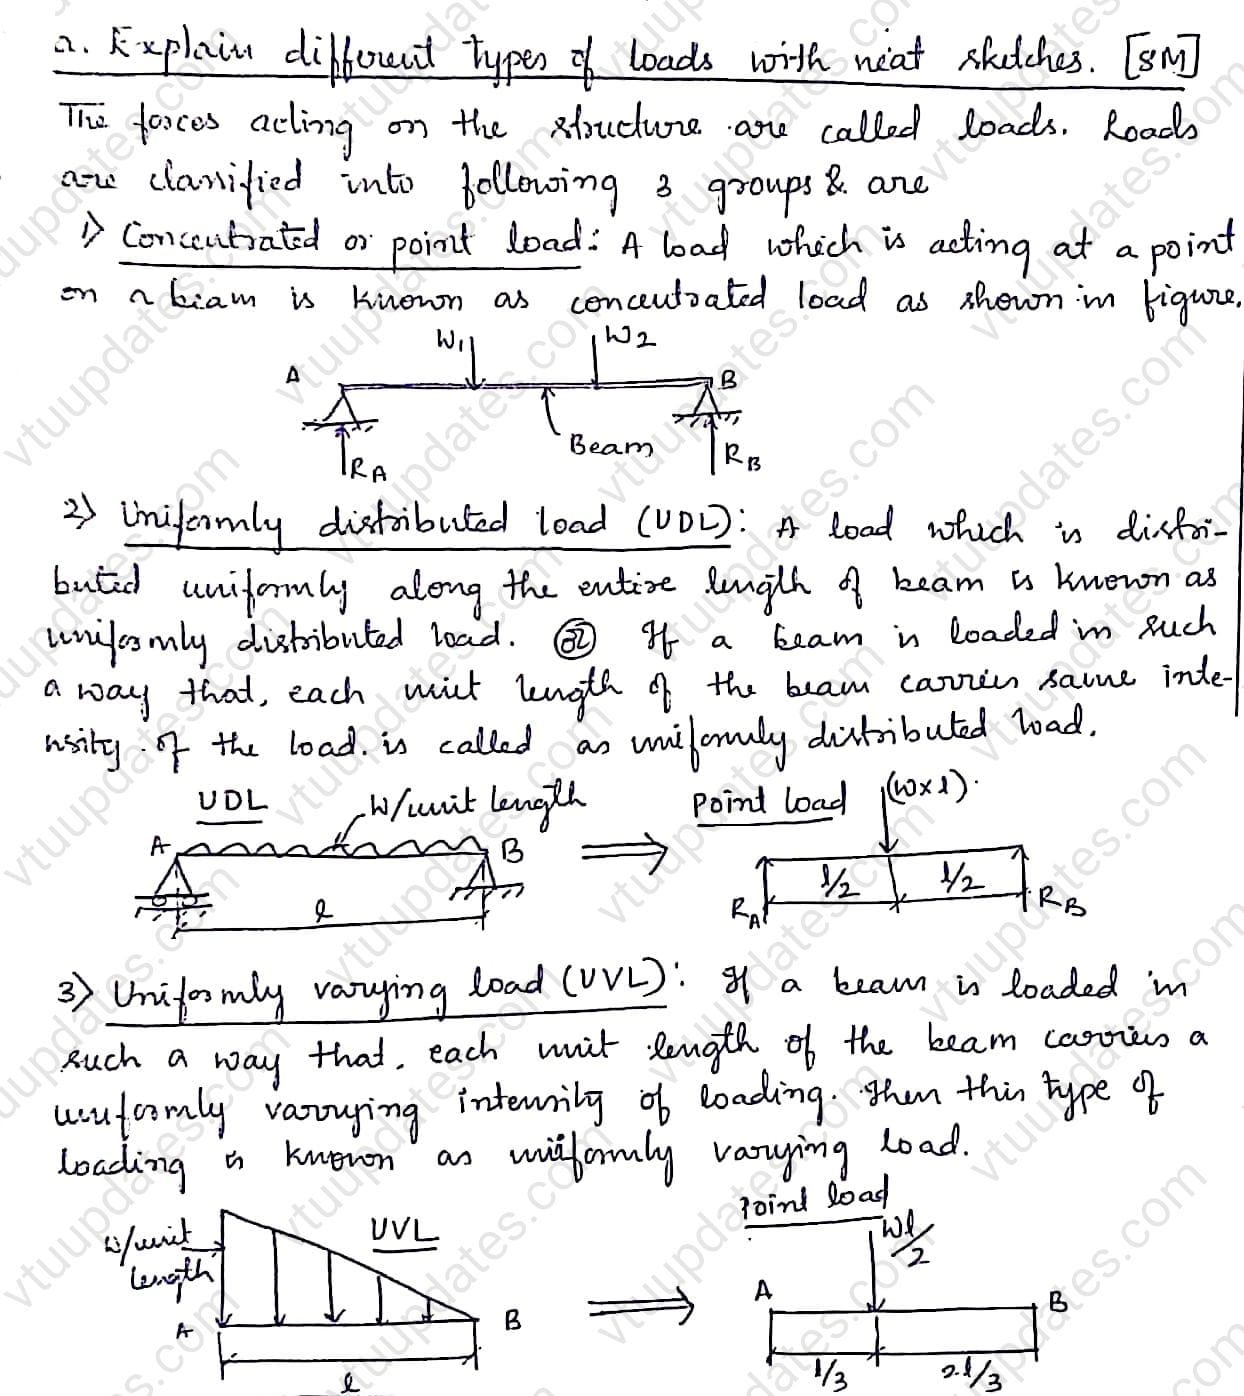 a. Explain different types of loads with neat sketches. [8M]
The forces acting on the structure are called loads. Loads
are classified into following 3 groups & are
1) Concentrated or point load: A load which is acting at a point
on a beam is known as concentrated load as shown in figure.
W1 W2
A B
Beam
RA RB
2) Uniformly distributed load (UDL): A load which is distri-
buted uniformly along the entire length of beam is known as
uniformly distributed load. OR If a beam is loaded in such
a way that, each unit length of the beam carries same inte-
nsity of the load. is called as uniformly distributed load.
UDL W/unit length Point load (W×l).
A B
l/2 l/2
l
RA RB
3) Uniformly varying load (UVL): If a beam is loaded in
such a way that, each unit length of the beam carries a
uniformly varrying intensity of loading. Then this type of
loading is known as uniformly varying load.
Point load
w/unit length UVL Wl/2
A B A B
l l/3 2l/3
vtuupdates.com